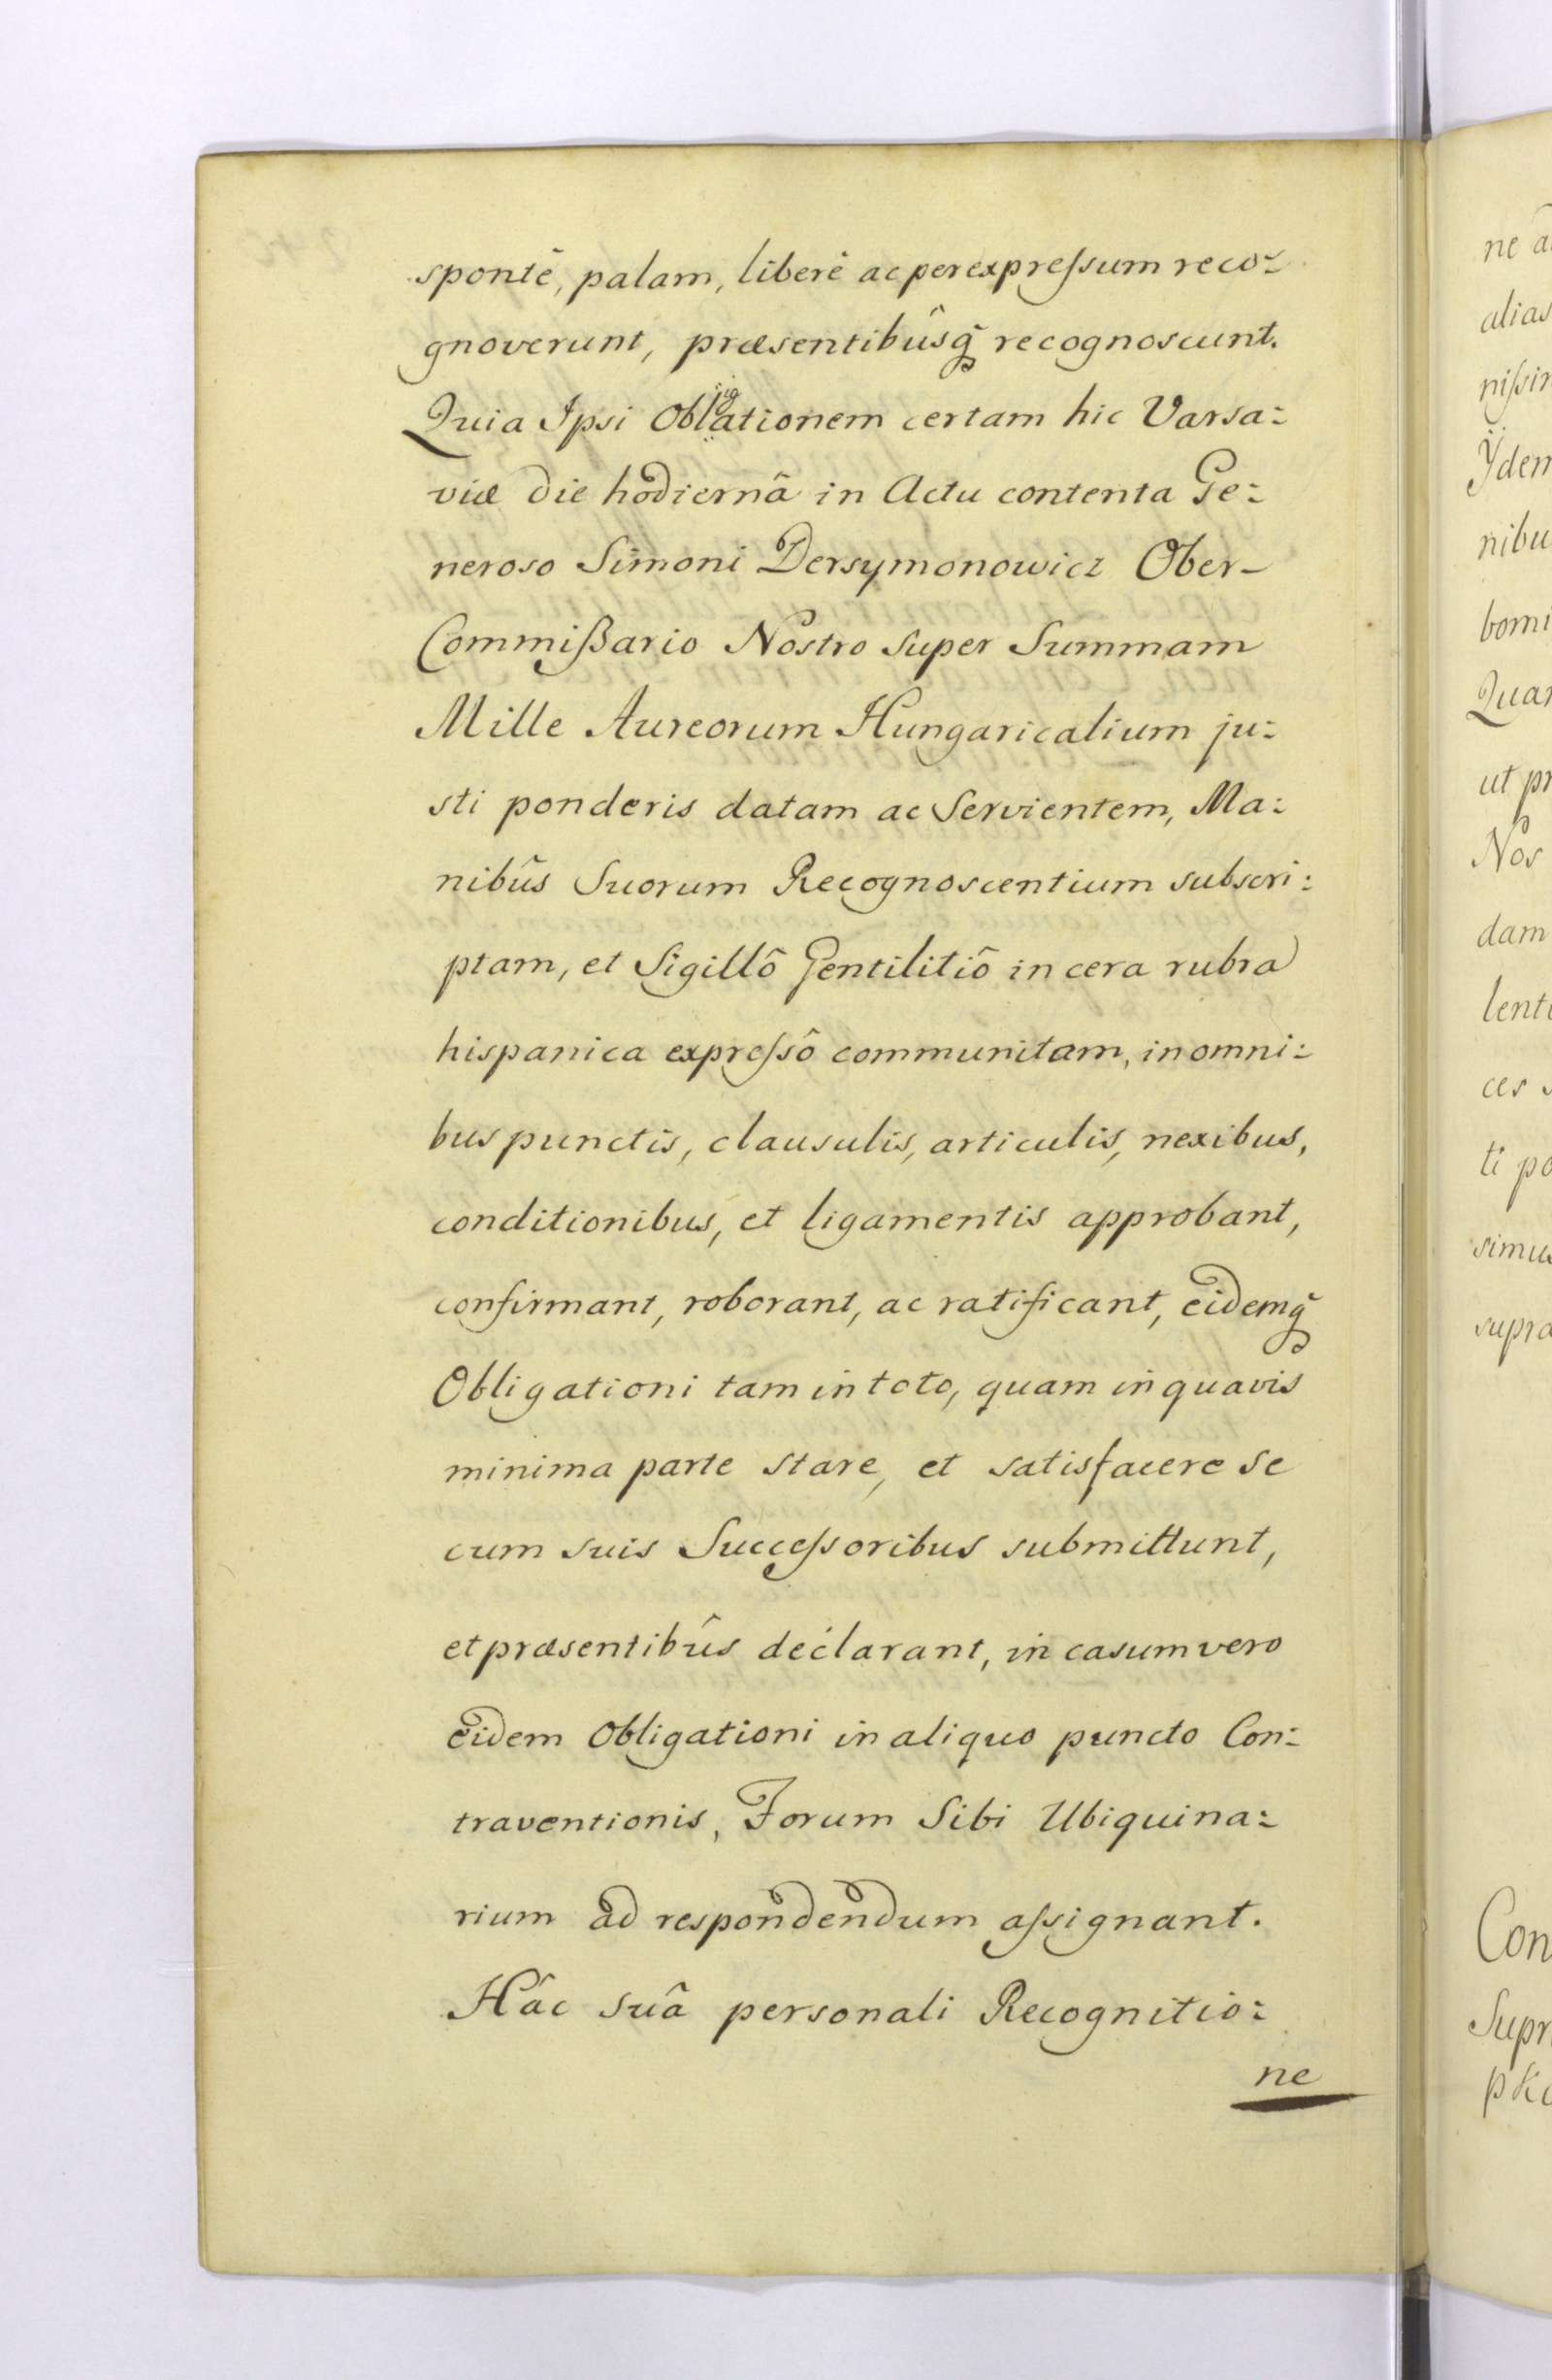 spontè, palam, liberè ac per expreſsum reco:
gnoverunt, præsentibûsq̃ recognoscunt.
Quia Ipsi Obligationem certam hic Varsa:
viæ die hodiernâ in Actu contenta Ge:
neroso Simoni Dersymonowicz Ober-
Commißario Nostro super Summam
Mille Aureorum Hungaricalium ju:
sti ponderis datam ac Servientem, Ma:
nibûs Suorum Recognoscentium subscri:
ptam, et Sigillô Gentilitiô in cera rubra
hispanica expreſsô communitam, in omni:
bus punctis, clausulis, articulis, nexibus,
conditionibus, et ligamentis approbant,
confirmant, roborant, ac ratificant, eidemq̃
Obligationi tam in toto, quam in quavis
minima parte stare, et satisfacere se
cum suis Succeſsoribus submittunt,
et præsentibûs declarant, in casum vero
eidem Obligationi in aliquo puncto Con:
traventionis, Forum Sibi Ubiquina:
rium ad respondendum aſsignant.
Hâc suâ personali Recognitio:
ne
ne a
alias
niſsin
Ÿdem
nibu
bomi
Quar
ut pr
Nos
dam
lent
ces
ti po
simus
supra
Con
Supr